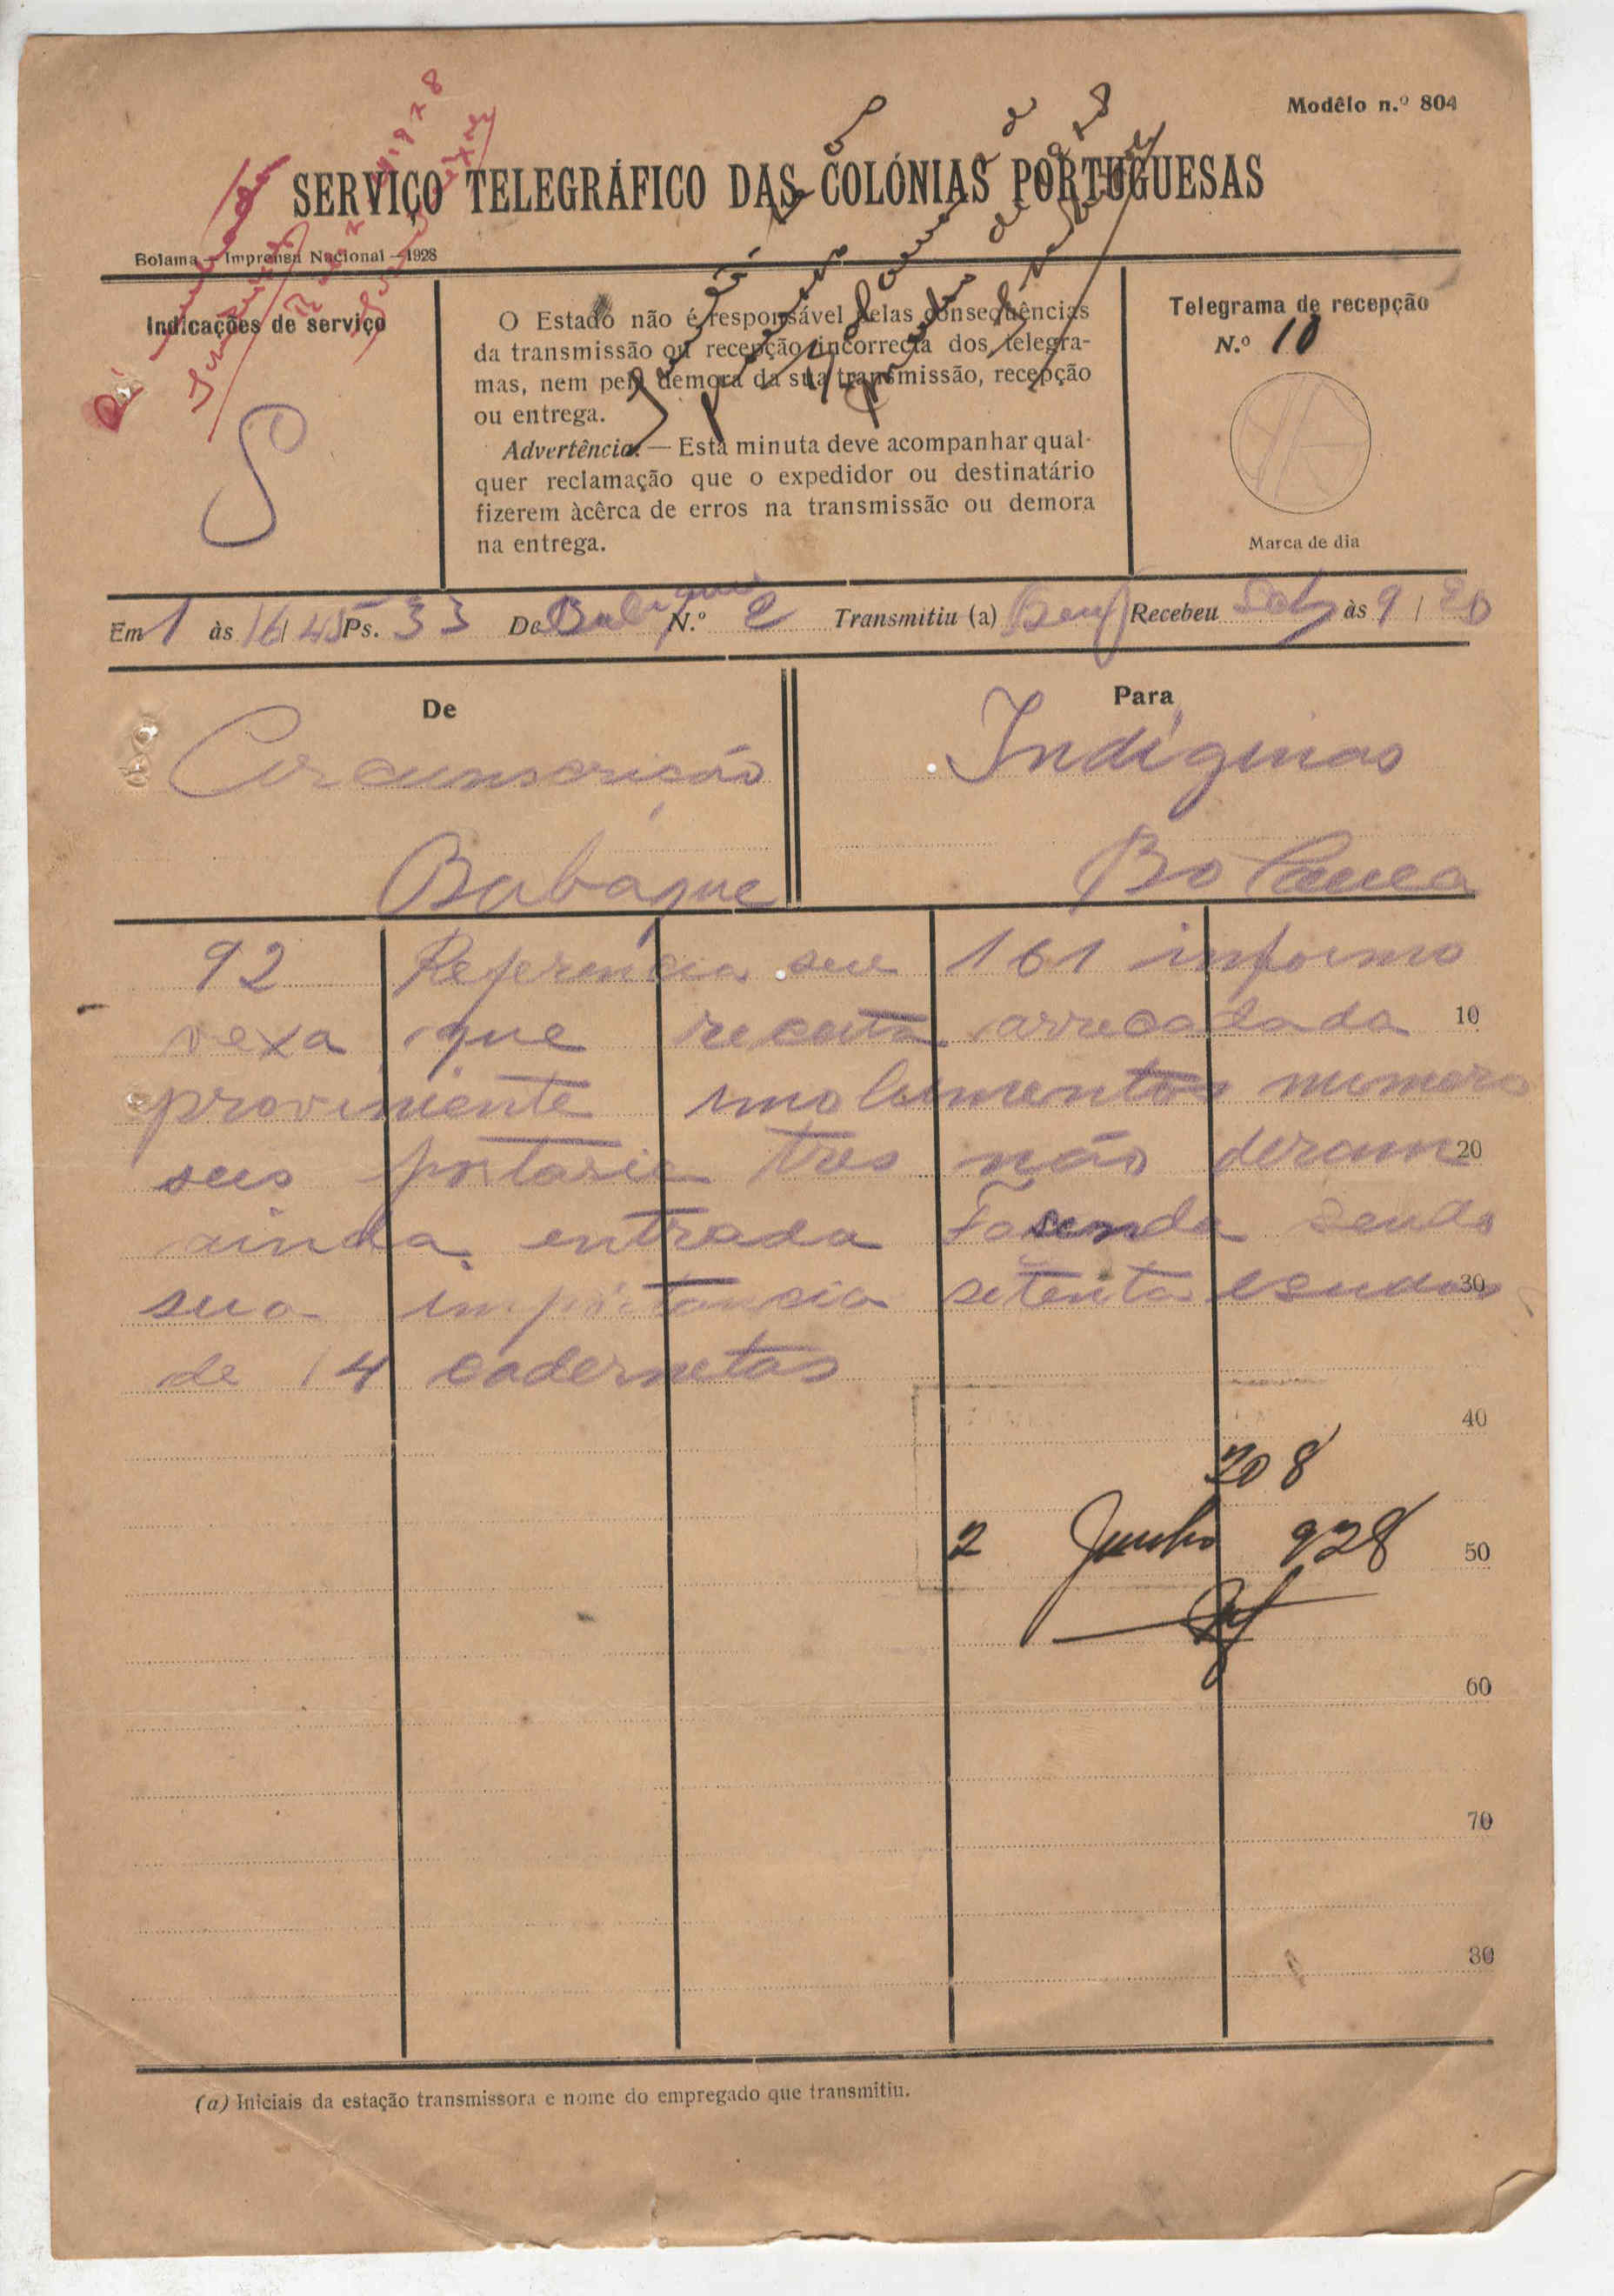 Modêlo n.º 804
SERVIÇO TELEGRÁFICO DAS COLÓNIAS PORTUGUESAS
Bolama — Imprensa Nacional — 1928
Indicações de serviço
S
O Estado não é responsável pelas consequências
da transmissão ou recepção incorrecta dos telegra-
mas, nem pela demora da sua transmissão, recepção
ou entrega.
Advertência. — Esta minuta deve acompanhar qual-
quer reclamação que o expedidor ou destinatário
fizerem àcêrca de erros na transmissão ou demora
na entrega.
Telegrama de recepção
N.º 10
Marca de dia
Em 1 às 16/45 Ps. 33 De Bubaque N.º 2 Transmitiu (a) Recebeu às 9/20
De
Circunscrição
Babáque
Para
Indíginas
Bolama
92 Referencia seu 161 informo
vexa que receita arrecadada 10
proviniente imolumentos numero
seis portaria tres não deram 20
ainda entrada Fasenda sendo
sua importancia setenta escudos 30
de 14 cadernetas
40
208
2 Junho 928
50
60
70
80
(a) Iniciais da estação transmissora e nome do empregado que transmitiu.